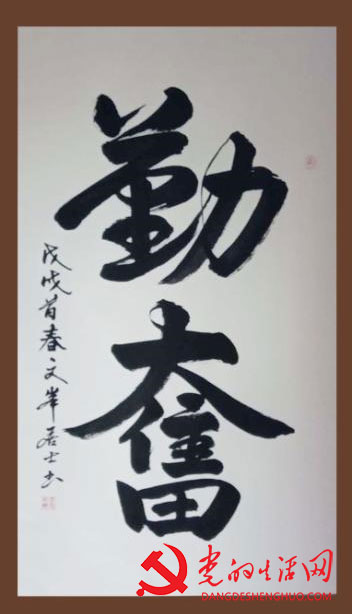 勤奮
戊戌首春文岸居士书
党的生活网
DANGDESHENGHUO.COM